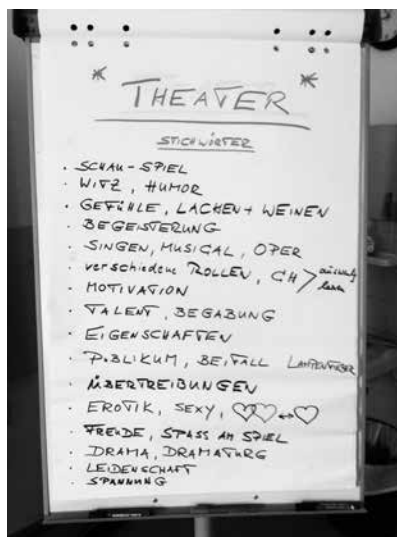 THEATER
STICHWÖRTER
· SCHAU-SPIEL
· WITZ, HUMOR
· GEFÜHLE, LACHEN + WEINEN
· BEGEISTERUNG
· SINGEN, MUSICAL, OPER
· verschiedene ROLLEN, CH
· MOTIVATION
· TALENT, BEGABUNG
· EIGENSCHAFTEN
· PUBLIKUM, BEIFALL LAMPENFIEBER
· ÜBERTREIBUNGEN
· EROTIK, SEXY, ♡♡↔♡
· FREUDE, SPASS AM SPIEL
· DRAMA, DRAMATURG
· LEIDENSCHAFT
· SPANNUNG